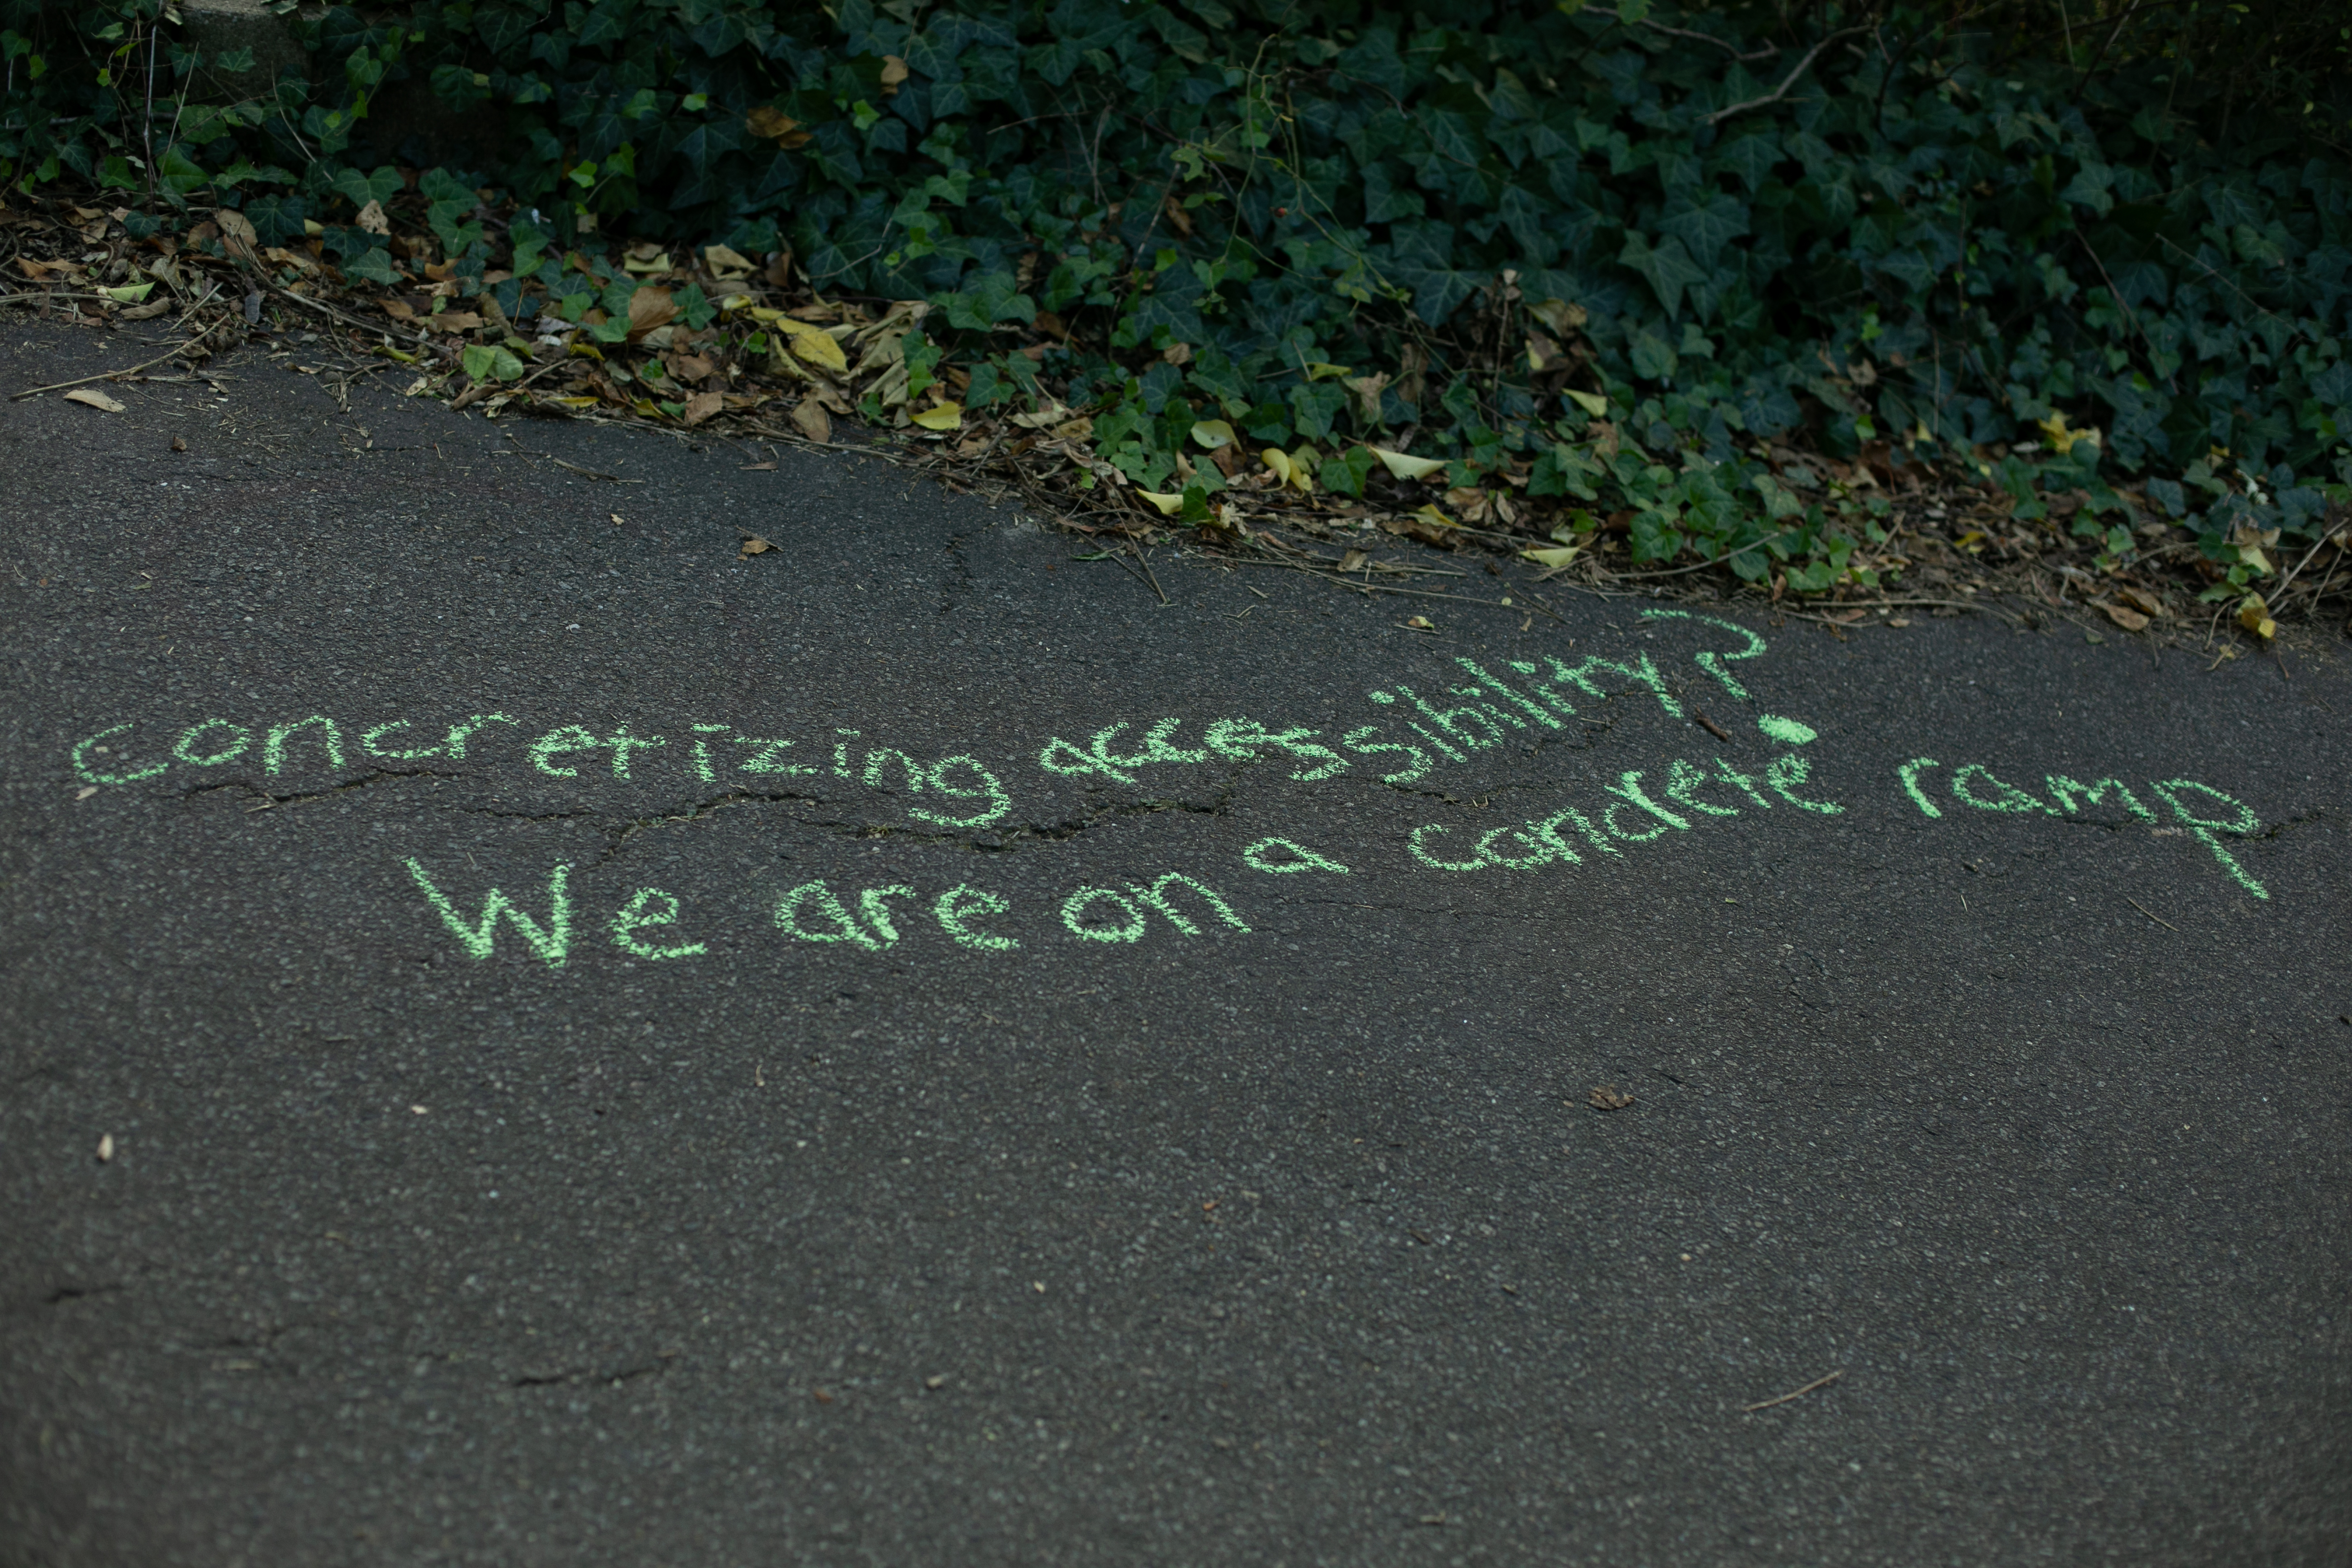 concretizing accessibility?
We are on a concrete ramp